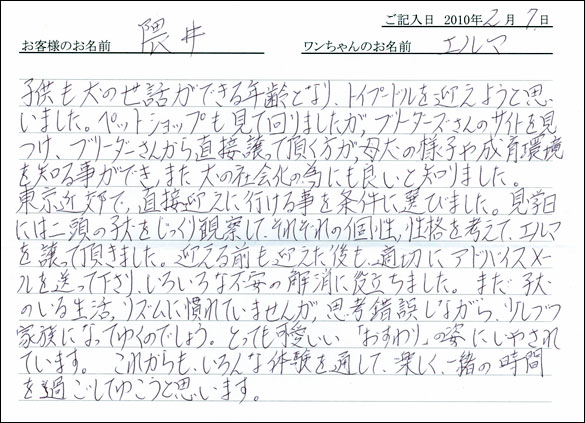 ご記入日 2010年2月7日
お客様のお名前 隈井 ワンちゃんのお名前 エルマ
子供も犬の世話ができる年齢となり、トイプードルを迎えようと思
いました。ペットショップも見て回りましたが、ブリーダーズさんのサイトを見
つけ、ブリーダーさんから直接譲って頂く方が、母犬の様子や成育環境
を知る事ができ、また犬の社会化の為にも良いと知りました。
東京近郊で、直接迎えに行ける事を条件に選びました。見学日
には二頭の子犬をじっくり観察して、それぞれの個性、性格を考えて、エルマ
を譲って頂きました。迎える前も迎えた後も、適切にアドバイスメ
ールを送って下さり、いろいろな不安の解消に役立ちました。まだ子犬
のいる生活、リズムに慣れていませんが、思考錯誤しながら、少しづつ
家族になってゆくのでしょう。とっても可愛いい「おすわり」の姿にいやされ
ています。 これからも、いろんな体験を通して、楽しく、一緒の時間
を過ごしてゆこうと思います。